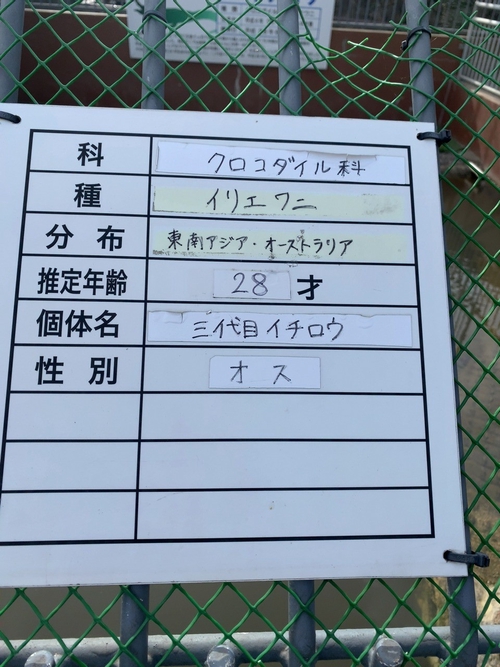 科 クロコダイル科
種 イリエワニ
分布 東南アジア・オーストラリア
推定年齢 28才
個体名 三代目イチロウ
性別 オス